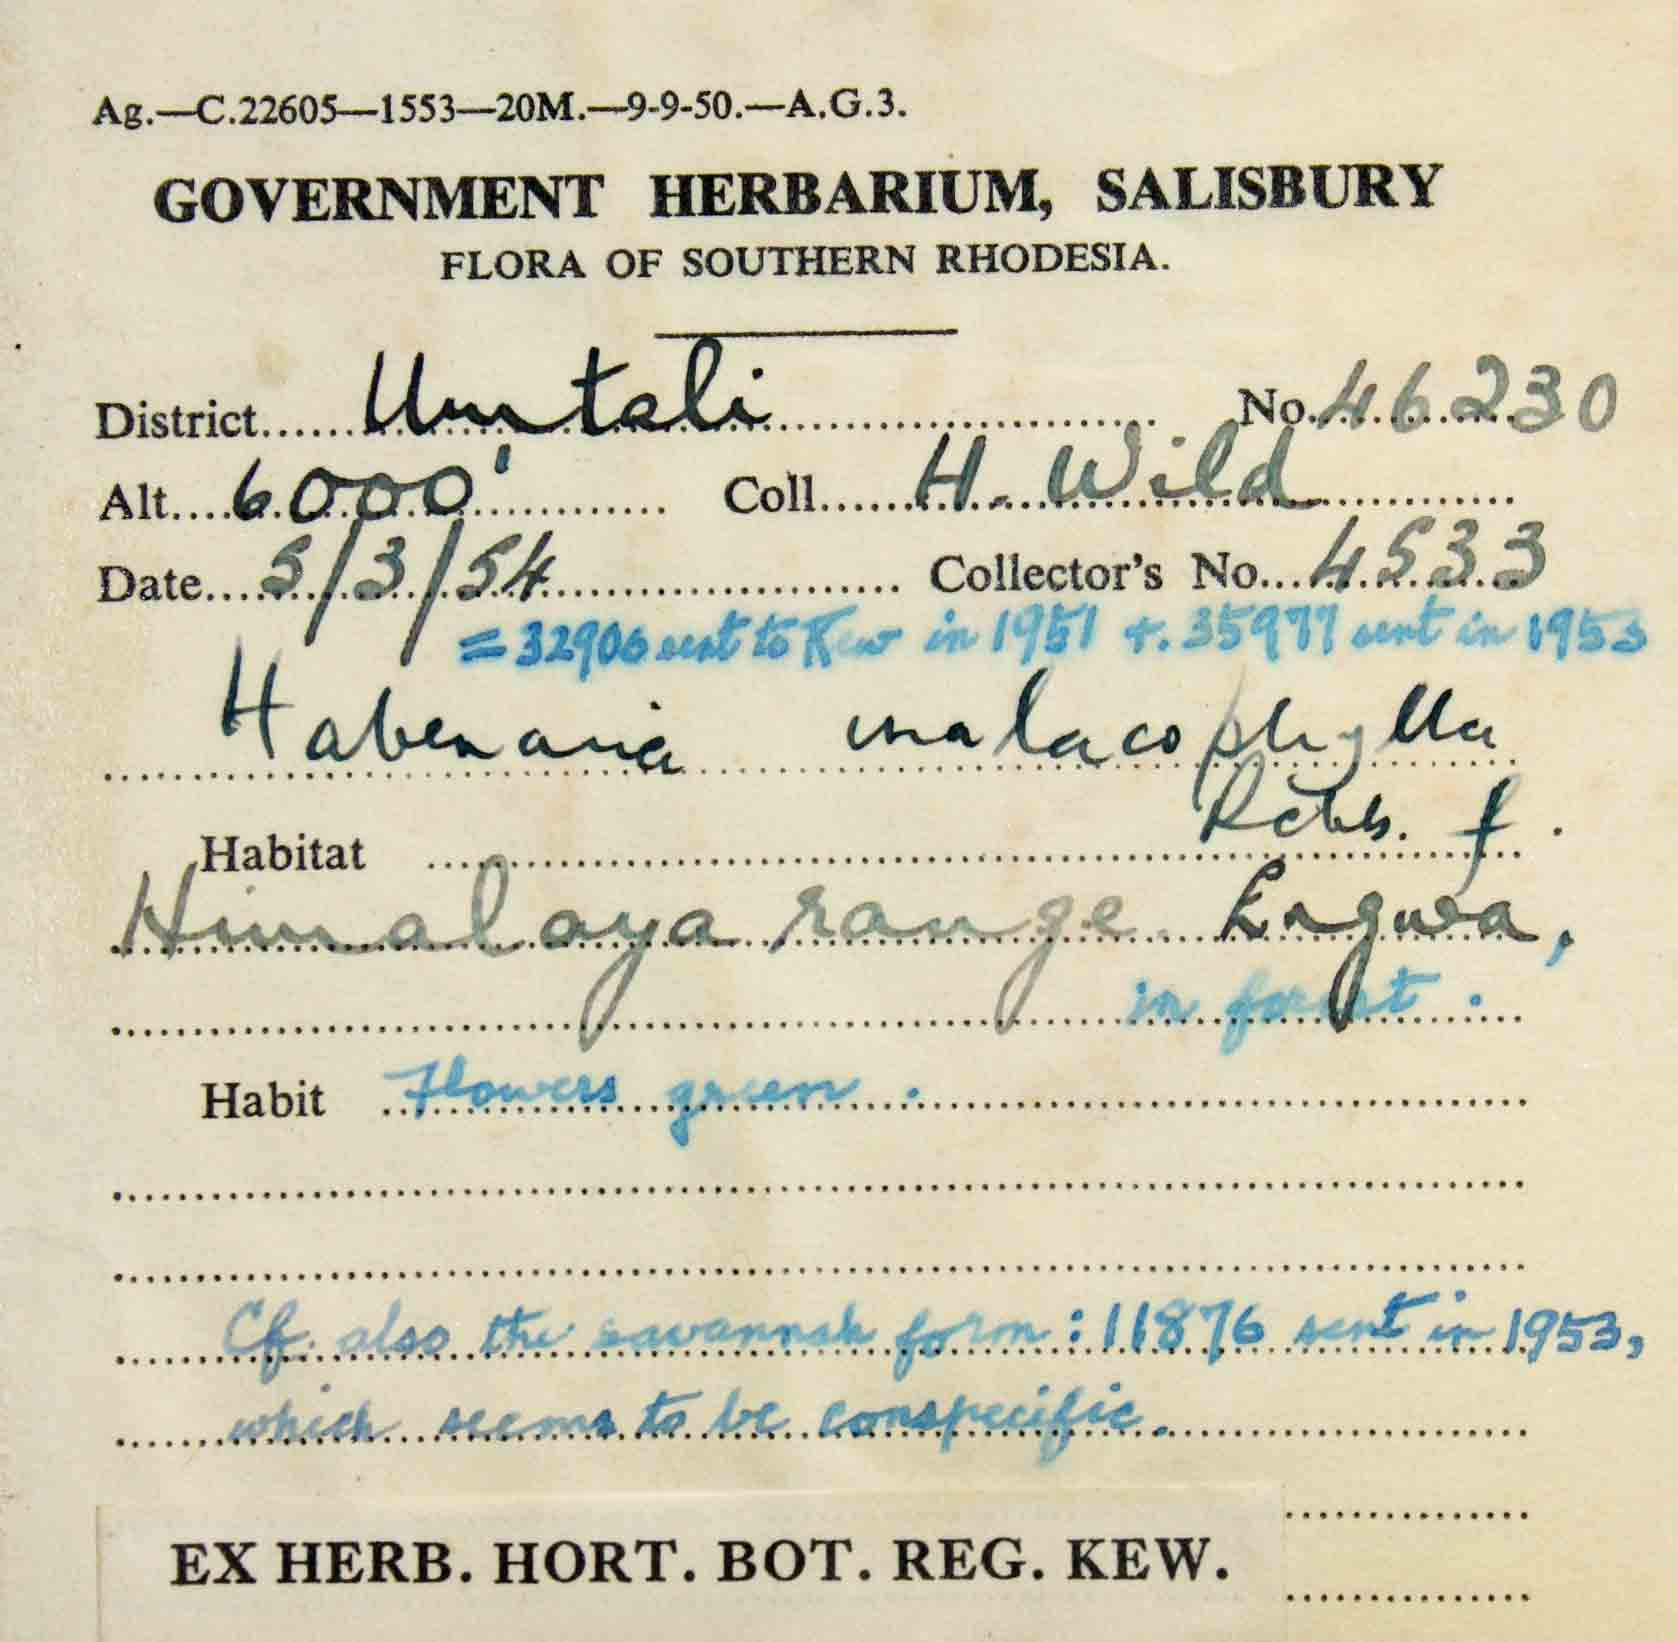 Ag.—C.22605—1553—20M.—9-9-50.—A.G.3.
GOVERNMENT HERBARIUM, SALISBURY
FLORA OF SOUTHERN RHODESIA.
District Umtali No. 46230
Alt. 6000' Coll. H. Wild
Date 5/3/54 Collector's No. 4533
= 32906 sent to Kew in 1951 +. 35977 sent in 1953
Habenaria malacophylla
Rchb. f.
Habitat
Himalaya range Engwa,
in forest.
Habit Flowers green.
Cf. also the savannah form: 11876 sent in 1953,
which seems to be conspecific.
EX HERB. HORT. BOT. REG. KEW.